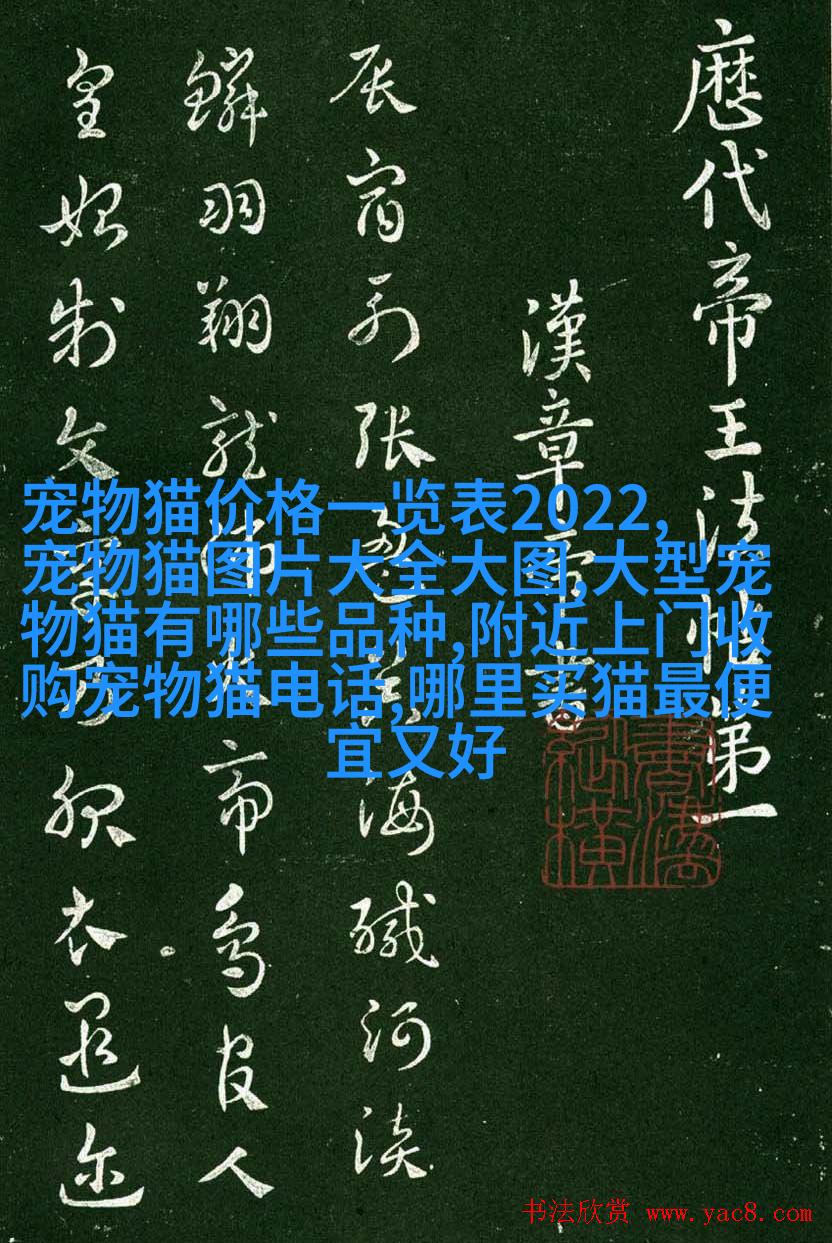 歷代帝王法帖第一
漢章帝書
辰宿列張海鹹河淡
鱗羽翔龍師火帝鳥官人
皇始制文字乃服衣遐迩
宠物猫价格一览表2022,
宠物猫图片大全大图,大型宠
物猫有哪些品种,附近上门收
购宠物猫电话,哪里买猫最便
宜又好
书法欣赏 www.yac8.com